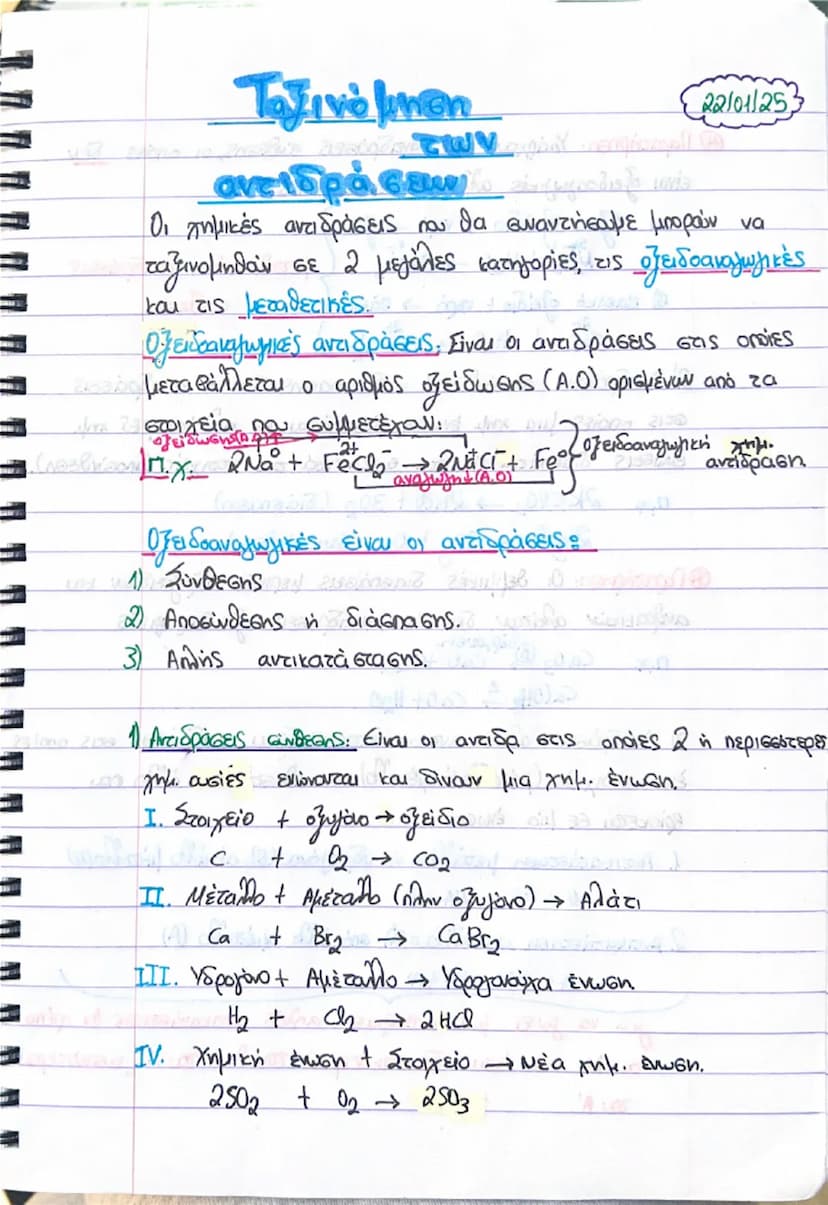 Ταξινόμηση
22/01/25
των
αντιδράσεων
Οι χημικές αντιδράσεις που θα συναντήσουμε μπορούν να
ταξινομηθούν σε 2 μεγάλες κατηγορίες, τις οξειδοαναγωγικές
και τις μεταθετικές.
Οξειδοαναγωγικές αντιδράσεις: Είναι οι αντιδράσεις στις οποίες
μεταβάλλεται ο αριθμός οξείδωσης (Α.Ο) ορισμένων από τα
στοιχεία που συμμετέχουν.
οξείδωση (Α.Ο)↑
π.χ. 2Na⁰ + Fe²⁺Cl₂⁻ → 2Na⁺Cl⁻ + Fe⁰ } Οξειδοαναγωγική χημ.
αντίδραση.
αναγωγή↓(Α.Ο)
Οξειδοαναγωγικές είναι οι αντιδράσεις:
1) Σύνθεσης
2) Αποσύνθεσης ή διάσπασης.
3) Απλής αντικατάστασης.
1) Αντιδράσεις σύνθεσης: Είναι οι αντιδρ στις οποίες 2 ή περισσότερες
χημ. ουσίες ενώνονται και δίνουν μια χημ. ένωση.
I. Στοιχείο + οξυγόνο → οξείδιο
C + O₂ → CO₂
II. Μέταλλο + Αμέταλλο (πλην οξυγόνο) → Αλάτι
Ca + Br₂ → CaBr₂
III. Υδρογόνο + Αμέταλλο → Υδρογονούχα ένωση
H₂ + Cl₂ → 2HCl
IV. Χημική ένωση + Στοιχείο → Νέα χημ. ένωση.
2SO₂ + O₂ → 2SO₃